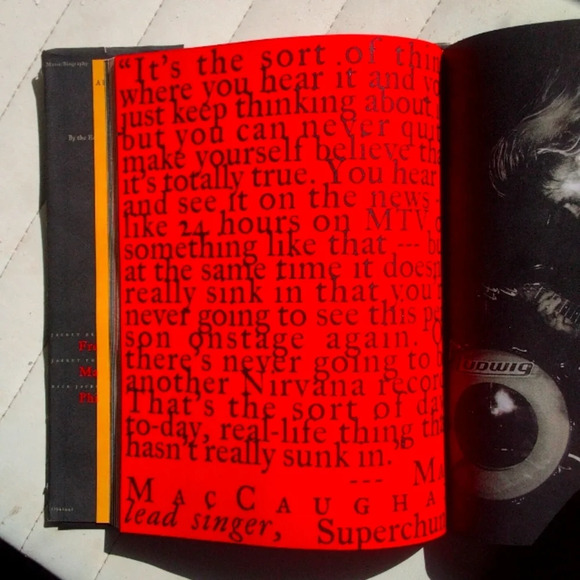 Music/Biography
By the
"It's the sort of thin
where you hear it and yo
just keep thinking about
but you can never qui
make yourself believe tha
it's totally true. You hear
and see it on the news
like 24 hours on MTV o
something like that --- bu
at the same time it doesn
really sink in that you'r
never going to see this pe
son onstage again.
there's never going to b
another Nirvana recor
That's the sort of day
to-day, real-life thing tha
hasn't really sunk in."
--- Ma
MacCaugha
lead singer, Superchun
Fre
Ma
Phi
Ludwig